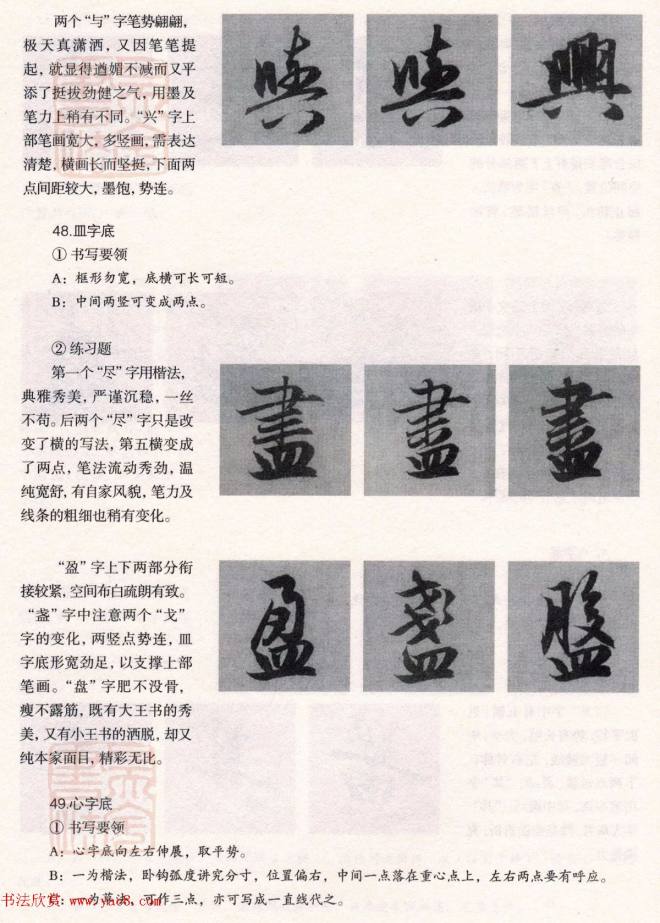 两个“与”字笔势翩翩,
极天真潇洒,又因笔笔提
起,就显得遒媚不减而又平
添了挺拔劲健之气,用墨及
笔力上稍有不同。“兴”字上
部笔画宽大,多竖画,需表达
清楚,横画长而坚挺,下面两
点间距较大,墨饱,势连。
與 與 興
48.皿字底
① 书写要领
A:框形勿宽,底横可长可短。
B:中间两竖可变成两点。
② 练习题
第一个“尽”字用楷法,
典雅秀美,严谨沉稳,一丝
不苟。后两个“尽”字只是改
变了横的写法,第五横变成
了两点,笔法流动秀劲,温
纯宽舒,有自家风貌,笔力及
线条的粗细也稍有变化。
盡 盡 盡
“盈”字上下两部分衔
接较紧,空间布白疏朗有致。
“盏”字中注意两个“戈”
字的变化,两竖点势连,皿
字底形宽劲足,以支撑上部
笔画。“盘”字肥不没骨,
瘦不露筋,既有大王书的秀
美,又有小王书的洒脱,却又
纯本家面目,精彩无比。
盈 盞 盤
49.心字底
① 书写要领
A:心字底向左右伸展,取平势。
B:一为楷法,卧钩弧度讲究分寸,位置偏右,中间一点落在重心点上,左右两点要有呼应。
一为草法,可作三点,亦可写成一直线代之。
书法欣赏 www.yac8.com